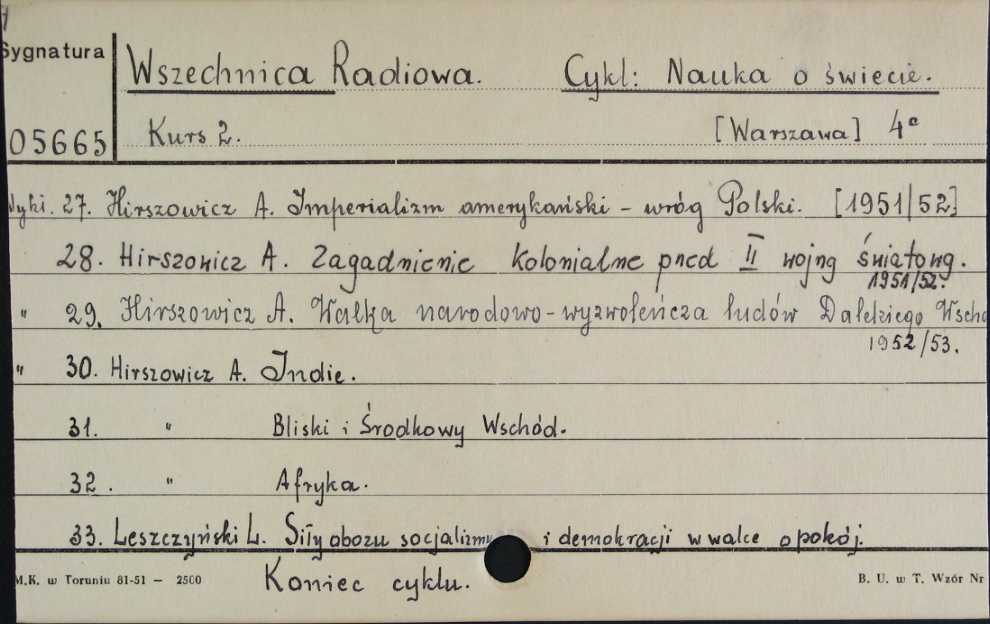 Sygnatura
Wszechnica Radiowa. Cykl: Nauka o świecie.
05665 Kurs 2. [Warszawa] 4°
27. Hirszowicz A. Imperializm amerykański - wróg Polski. [1951/52]
28. Hirszowicz A. Zagadnienie kolonialne pned II wojną światową.
1951/52.
" 29. Hirszowicz A. Walka narodowo-wyzwoleńcza ludów Dalekiego Wscho
1952/53.
" 30. Hirszowicz A. Indie.
31. " Bliski i Środkowy Wschód.
32. " Afryka.
33. Leszczyński L. Siły obozu socjalizmu i demokracji w walce o pokój.
Koniec cyklu.
M.K. w Toruniu 81-51 — 2500 B. U. w T. Wzór Nr